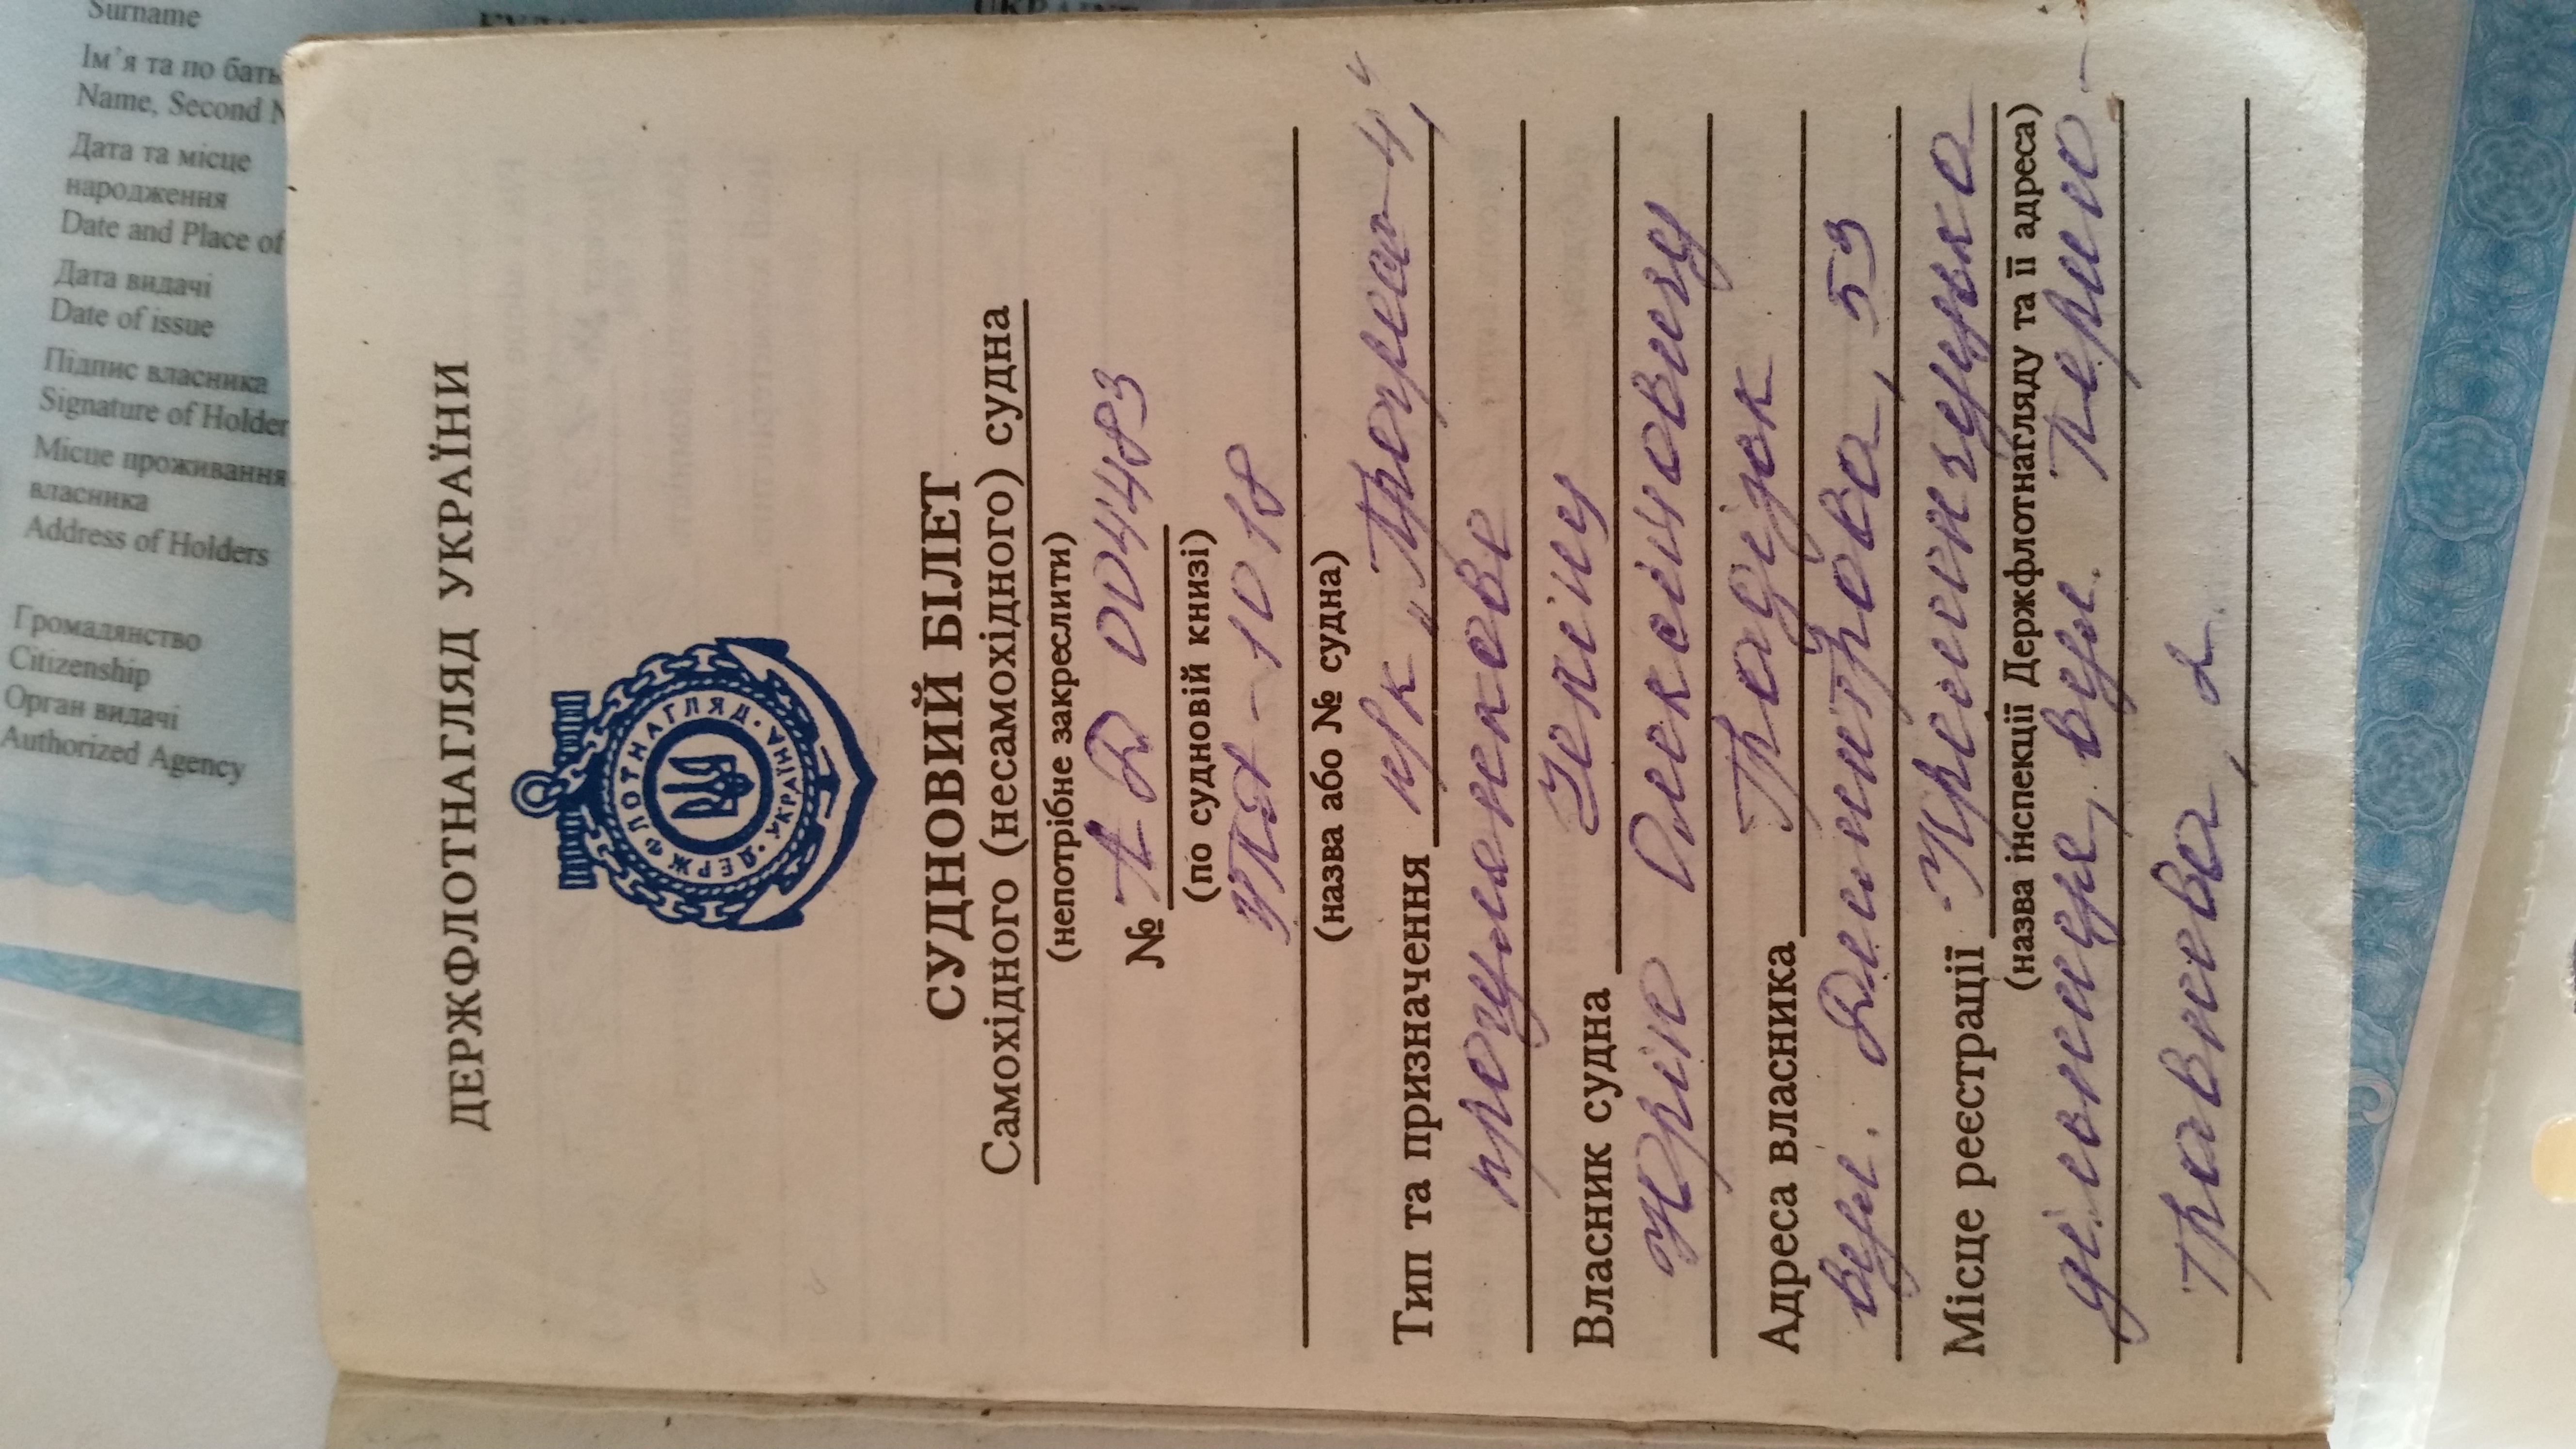 Surname
Ім'я та по бать
Name, Second N
Дата та місце
народження
Date and Place of
Дата видачі
Date of issue
Підпис власника
Signature of Holder
Місце проживання
власника
Address of Holders
Громадянство
Citizenship
Орган видачі
Authorized Agency
ДЕРЖФЛОТНАГЛЯД УКРАЇНИ
ДЕРЖФЛОТНАГЛЯД · УКРАЇНА ·
СУДНОВИЙ БІЛЕТ
Самохідного (несамохідного) судна
(непотрібне закреслити)
№ АД 004483
(по судновій книзі)
УПЛ - 1018
(назва або № судна)
Тип та призначення м/к „Прогрес-4"
прогулянкове
Власник судна
Юрію Олексійовичу
Адреса власника Градізьк
вул. Димитрова, 53
Місце реєстрації Кременчуцька
(назва інспекції Держфлотнагляду та її адреса)
дільниця, вул. Першо-
травнева, 2